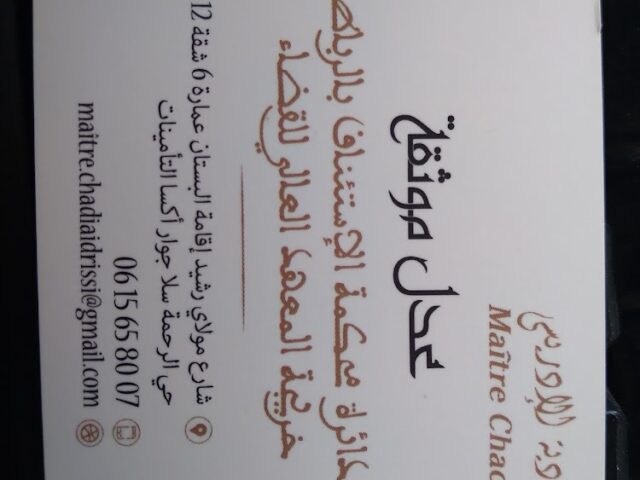 الإدريسي
Maître Chad
عدل موثقة
بدائرة محكمة الإستئناف بالرباط
خريجة المعهد العالي للقضاء
شارع مولاي رشيد إقامة البستان عمارة 6 شقة 12
حي الرحمة سلا جوار أكسا التأمينات
06 15 65 80 07
maitre.chadiaidrissi@gmail.com